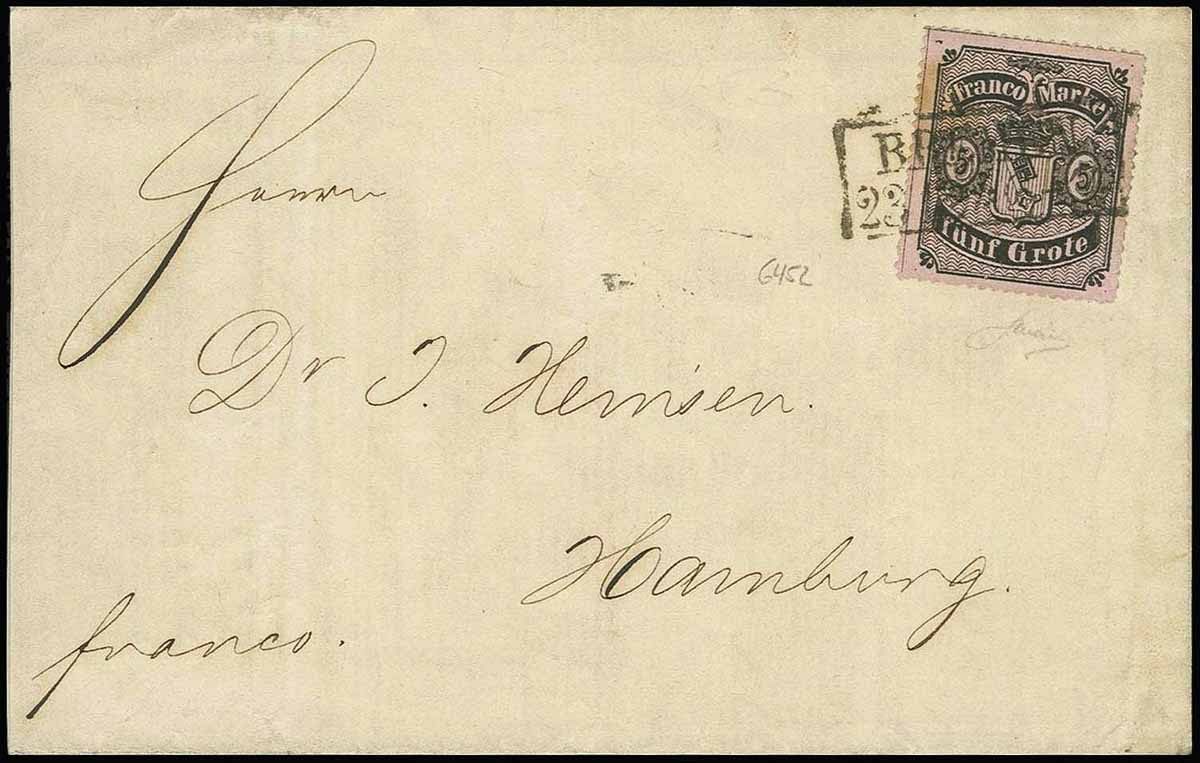 Franco Marke.
5 5
fünf Grote
BR
23
Herrn
6452
Dr J. Hemsen.
Hamburg.
franco.